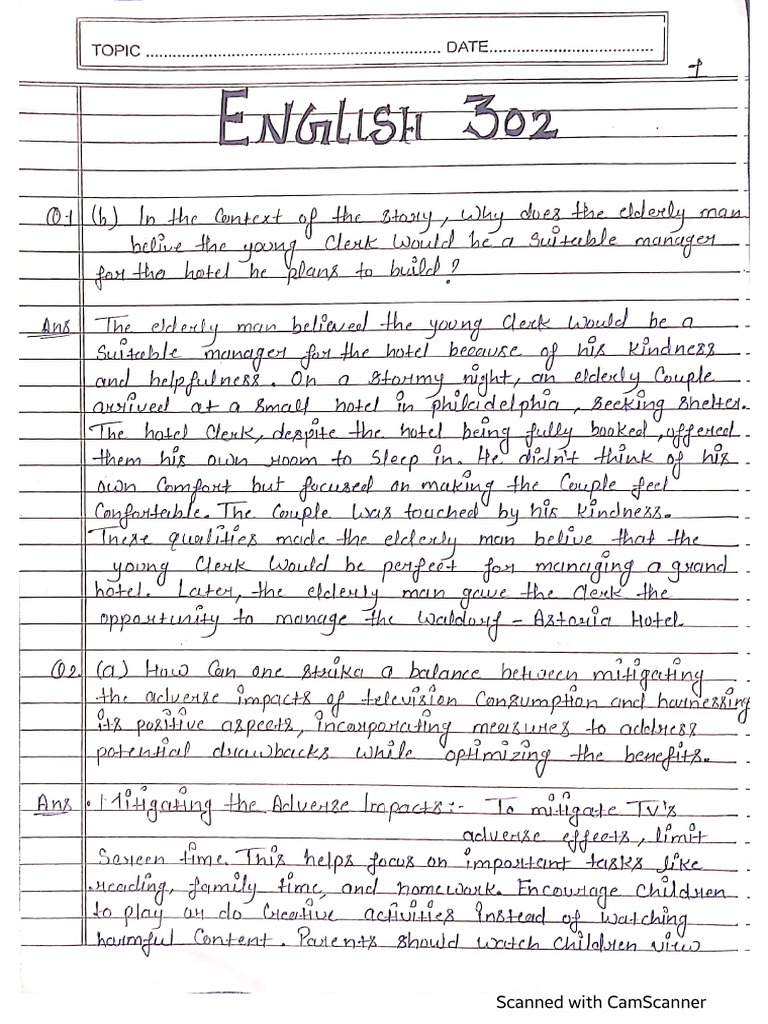 TOPIC ........................................................ DATE...................................
1
ENGLISH 302
Q.1 (b) In the Context of the story, Why does the elderly man
belive the young Clerk Would be a Suitable manager
for the hotel he plans to build?
Ans The elderly man believed the young Clerk Would be a
Suitable manager for the hotel because of his kindness
and helpfulness. On a stormy night, an elderly Couple
arrived at a small hotel in philadelphia, seeking shelter.
The hotel Clerk, despite the hotel being fully booked, offered
them his own room to Sleep in. He didn't think of his
own Comfort but focused on making the Couple feel
Confortable. The Couple Was touched by his kindness.
These qualities made the elderly man belive that the
young Clerk Would be perfect for managing a grand
hotel. Later, the elderly man gave the Clerk the
opportunity to manage the Waldorf - Astoria Hotel.
Q2. (a) How Can one strika a balance between mitigating
the adverse impacts of television Consumption and harnessing
its positive aspects, incorporating measures to address
potential drawbacks While optimizing the benefits.
Ans . Mitigating the Adverse Impacts:- To mitigate TV's
adverse effects, limit
Screen time. This helps focus on important tasks like
reading, family time, and homework. Encourage Children
to play or do Creative activities instead of watching
harmful Content. Parents should Watch Children view
Scanned with CamScanner